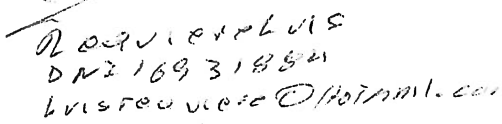 Requiere Luis
DNI 16931884
luisrequiere@Hotmail.com